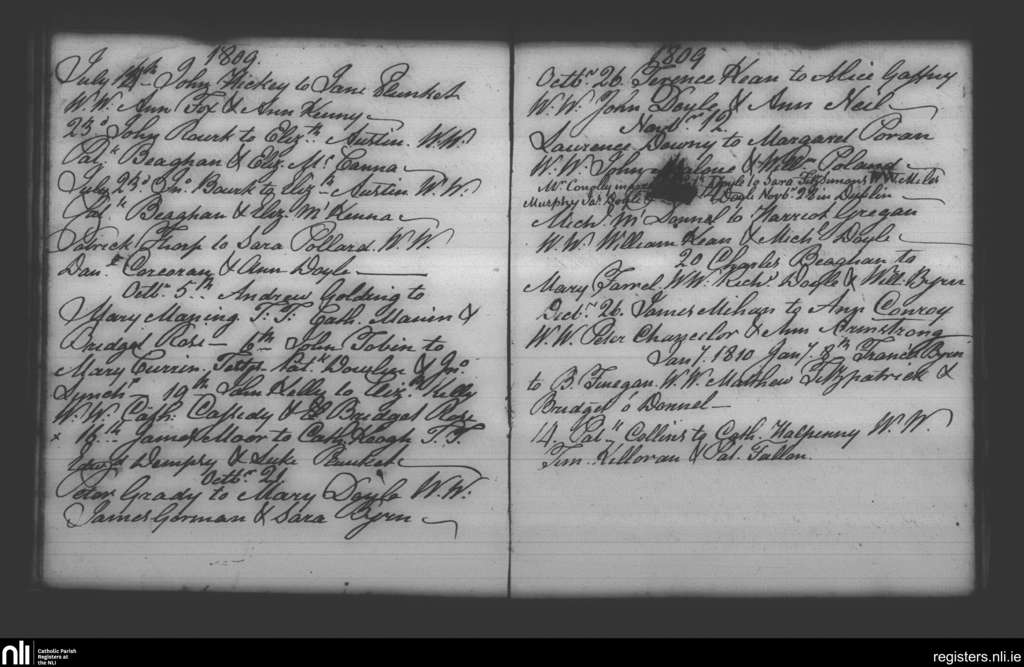 1809.
July 14th John Hickey to Jane Plunket
W.W. Ann Fox & Ann Kenny
23d John Rourk to Elizth Austin. W.W.
Patk Beaghan & Eliz. McCanna
July 23d Jno Bourk to Elizth Austin W.W.
Patk Beaghan & Eliz. McKenna
Patrick Thorp to Sara Pollard. W.W.
Danl Corcoran & Ann Doyle
Octbr 5th Andrew Golding to
Mary Maning T.T. Cath. &
Bridget Rose 6th John Tobin to
Mary Currin. Testes Patk & Jno
Lynch 19th John Kelly to Elizth Kelly
W.W. Cath. Cassedy & Bridget Rose
x 16th James Moor to Cath. Keogh T.T.
Edwd Dempsy & Luke Plunket
Octbr 21
Peter Grady to Mary Doyle W.W.
James Gorman & Sara Byrn
1809
Octbr 26. Terence Kean to Alice Gaffny
W.W. John Doyle & Ann Neil
Novbr 12.
Laurence Downy to Margaret Poran
W.W. John Malone & Wm Poland
Mr Conoly Doyle to Sara Fitzsimons W.W. Miles
Murphy Jas Doyle Doyle Novbr 28 in Dublin
Mich. McDannel to Harriot Gregan
W.W. William Kean & Michl Doyle
20 Charles Beaghan to
Mary Farrel W.W. Richd Doyle & Will. Byrn
Decbr 26. James Mihan to Ann Conroy
W.W. Peter Chancelor & Ann Armstrong
Jany. 1810 Jany. 8th Francis Byrn
to B. Finegan. W.W. Mathew Fitzpatrick &
Bridget o Donnel
14. Patk Collins to Cath. Halpenny W.W.
Tim. Killoran & Pat. Fallon.
nli
Catholic Parish
Registers at
the NLI
registers.nli.ie